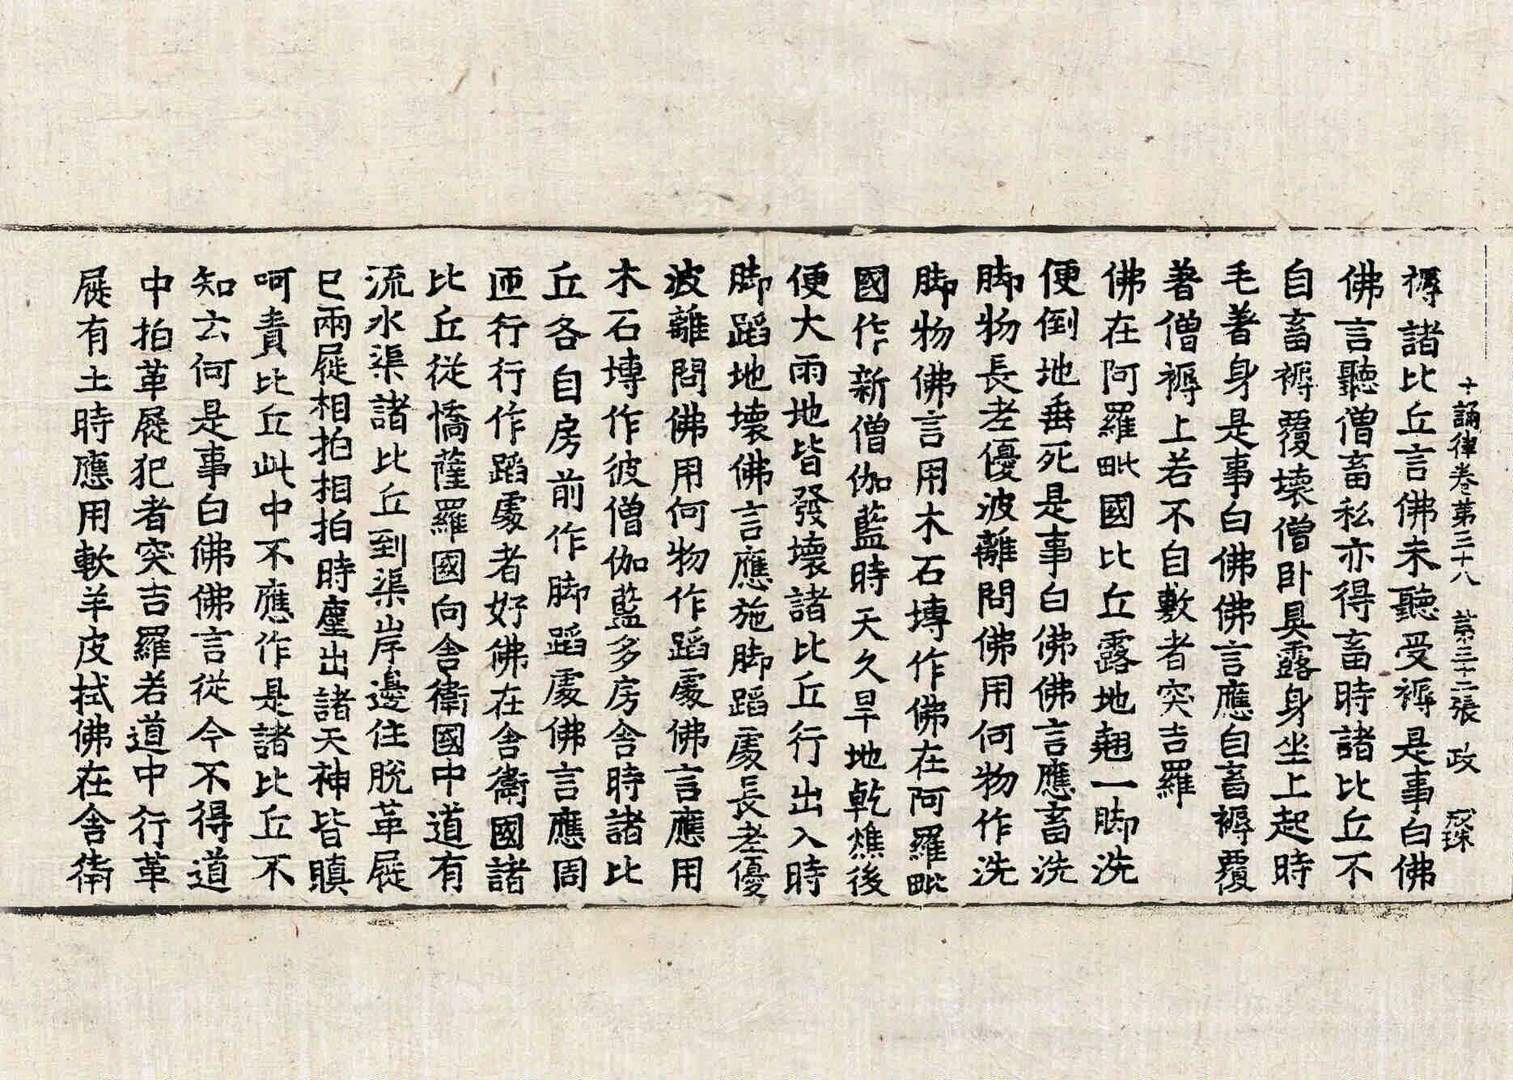 十誦律卷第三十八 第三十二張 政
褥諸比丘言佛未聽受褥是事白佛
佛言聽僧畜私亦得畜時諸比丘不
自畜褥覆壞僧卧具露身坐上起時
毛著身是事白佛佛言應自畜褥覆
著僧褥上若不自敷者突吉羅
佛在阿羅毗國比丘露地翹一脚洗
便倒地垂死是事白佛佛言應畜洗
脚物長老優波離問佛用何物作洗
脚物佛言用木石塼作佛在阿羅毗
國作新僧伽藍時天久旱地乾燋後
便大雨地皆發壞諸比丘行出入時
脚蹈地壞佛言應施脚蹈處長老優
波離問佛用何物作蹈處佛言應用
木石塼作彼僧伽藍多房舍時諸比
丘各自房前作脚蹈處佛言應周
匝行行作蹈處者好佛在舍衛國諸
比丘從憍薩羅國向舍衛國中道有
流水渠諸比丘到渠岸邊住脫革屣
已兩屣相拍相拍時塵出諸天神皆瞋
呵責比丘此中不應作是諸比丘不
知云何是事白佛佛言從今不得道
中拍革屣犯者突吉羅若道中行革
屣有土時應用軟羊皮拭佛在舍衛